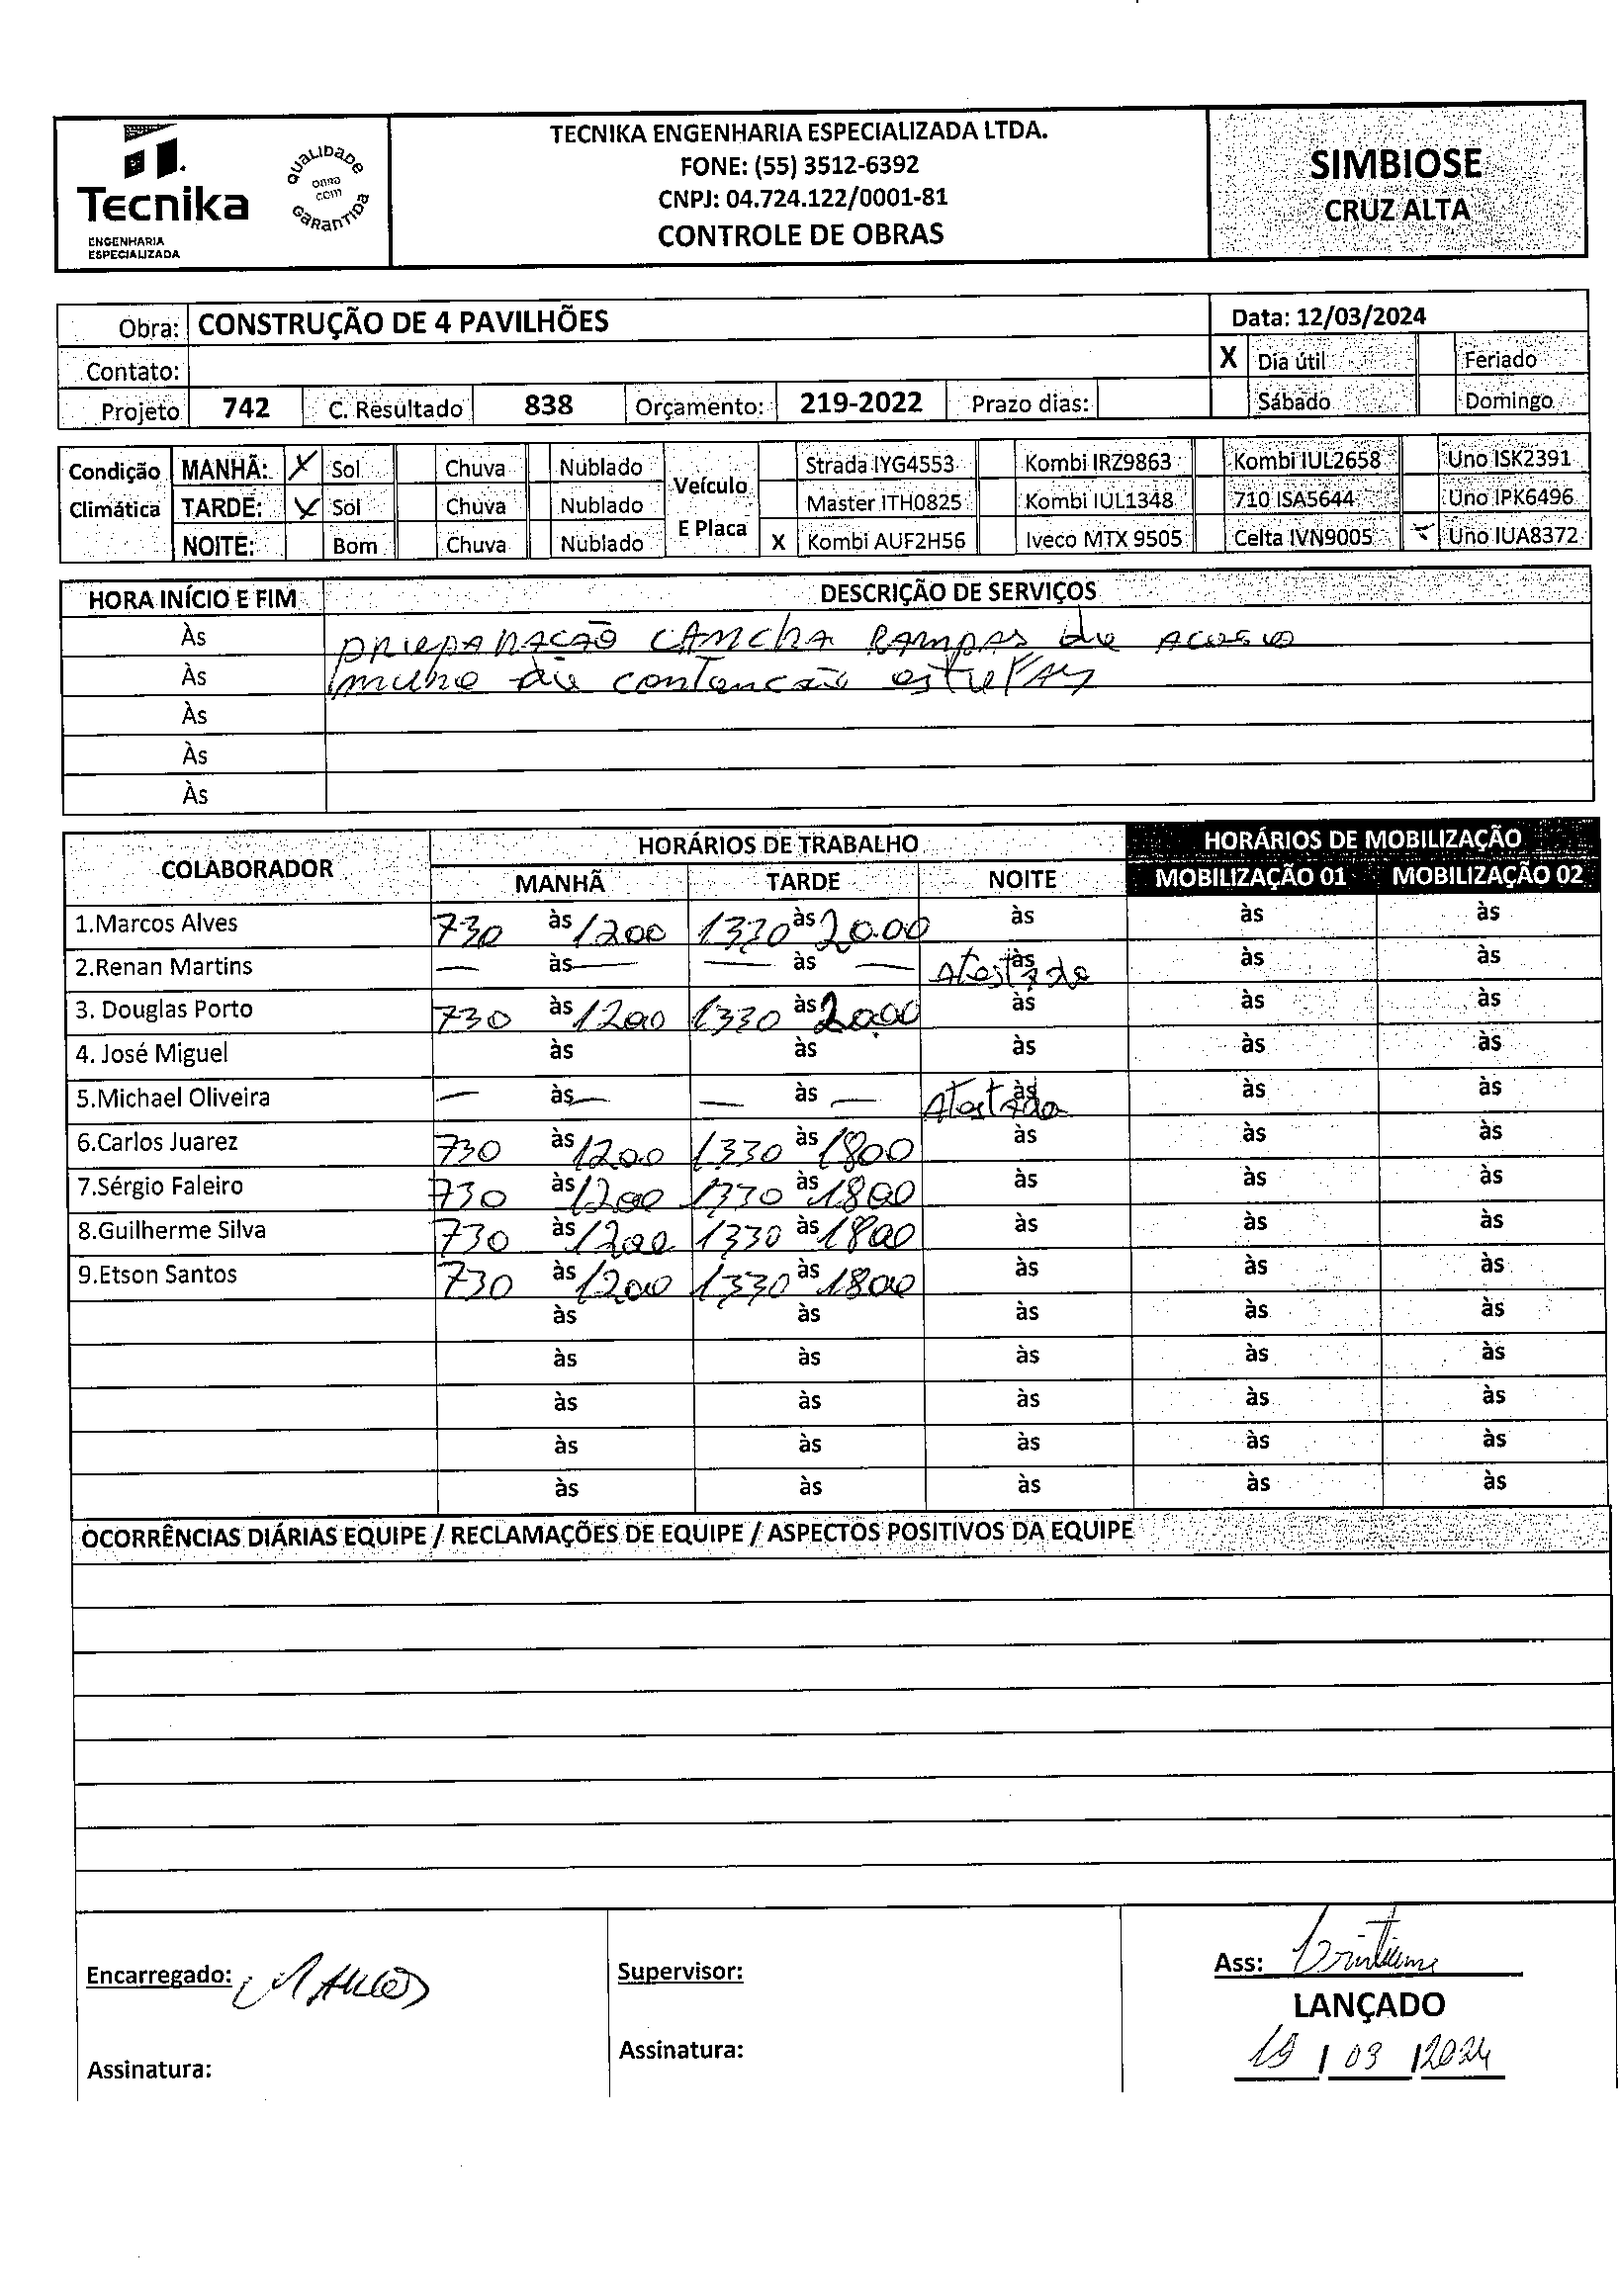 Tecnika
ENGENHARIA
ESPECIALIZADA
QUALIDADE
OBRA
COM
GARANTIDA
TECNIKA ENGENHARIA ESPECIALIZADA LTDA.
FONE: (55) 3512-6392
CNPJ: 04.724.122/0001-81
CONTROLE DE OBRAS
SIMBIOSE
CRUZ ALTA
Obra: CONSTRUÇÃO DE 4 PAVILHÕES Data: 12/03/2024
Contato: X Dia útil Feriado
Projeto 742 C. Resultado 838 Orçamento: 219-2022 Prazo dias: Sábado Domingo
Condição MANHÃ: X Sol Chuva Nublado Veículo Strada IYG4553 Kombi IRZ9863 Kombi IUL2658 Uno ISK2391
Climática TARDE: X Sol Chuva Nublado Master ITH0825 Kombi IUL1348 710 ISA5644 Uno IPK6496
NOITE: Bom Chuva Nublado E Placa X Kombi AUF2H56 Iveco MTX 9505 Celta IVN9005 Uno IUA8372
HORA INÍCIO E FIM DESCRIÇÃO DE SERVIÇOS
Às preparação cancha rampas de acesso
Às muro de contencão
Às
Às
Às
COLABORADOR HORÁRIOS DE TRABALHO HORÁRIOS DE MOBILIZAÇÃO
MANHÃ TARDE NOITE MOBILIZAÇÃO 01 MOBILIZAÇÃO 02
1.Marcos Alves 730 às 1200 1330 às 20.00 às às às
2.Renan Martins — às — — às — às Atestado às às
3. Douglas Porto 730 às 1200 1330 às 20.00 às às às
4. José Miguel às às às às às
5.Michael Oliveira — às — — às — às Atestado às às
6.Carlos Juarez 730 às 1200 1330 às 1800 às às às
7.Sérgio Faleiro 730 às 1200 1330 às 1800 às às às
8.Guilherme Silva 730 às 1200 1330 às 1800 às às às
9.Etson Santos 730 às 1200 1330 às 1800 às às às
às às às às às
às às às às às
às às às às às
às às às às às
às às às às às
OCORRÊNCIAS DIÁRIAS EQUIPE / RECLAMAÇÕES DE EQUIPE / ASPECTOS POSITIVOS DA EQUIPE
Encarregado: Marcos Supervisor: Ass:
LANÇADO
Assinatura: Assinatura: 19 / 03 / 2024